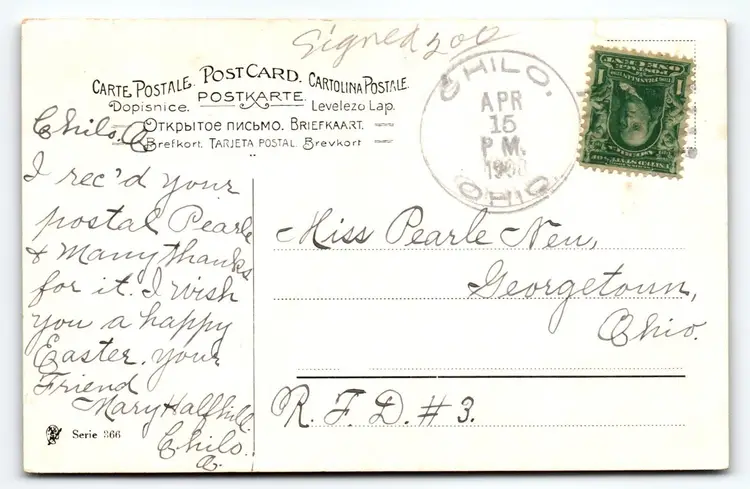 Signed 200
CARTE POSTALE. POST CARD. CARTOLINA POSTALE.
Dopisnice. POSTKARTE. Levelezo Lap.
ОТКРЫТОЕ ПИСЬМО. BRIEFKAART.
Brefkort. TARJETA POSTAL. Brevkort
CHILO.
APR
15
P M.
1908
OHIO.
1 1
Chilo, O.
I rec'd your
postal Pearle
& Many thanks
for it. I wish
you a happy
Easter. your
Friend
Mary Halfhill.
Chilo.
O.
Serie 366
Miss Pearle Neu,
Georgetown,
Ohio.
R. F. D. # 3.